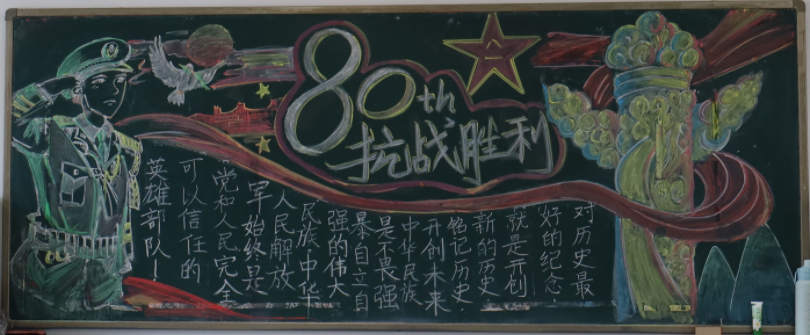 80th
抗战胜利
对历史最
好的纪念，
就是开创
新的历史
铭记历史
开创未来
中华民族
是不畏强
暴自立自
强的伟大
民族，中华
人民解放
军始终是
“党和人民完全
可以信任的
英雄部队！